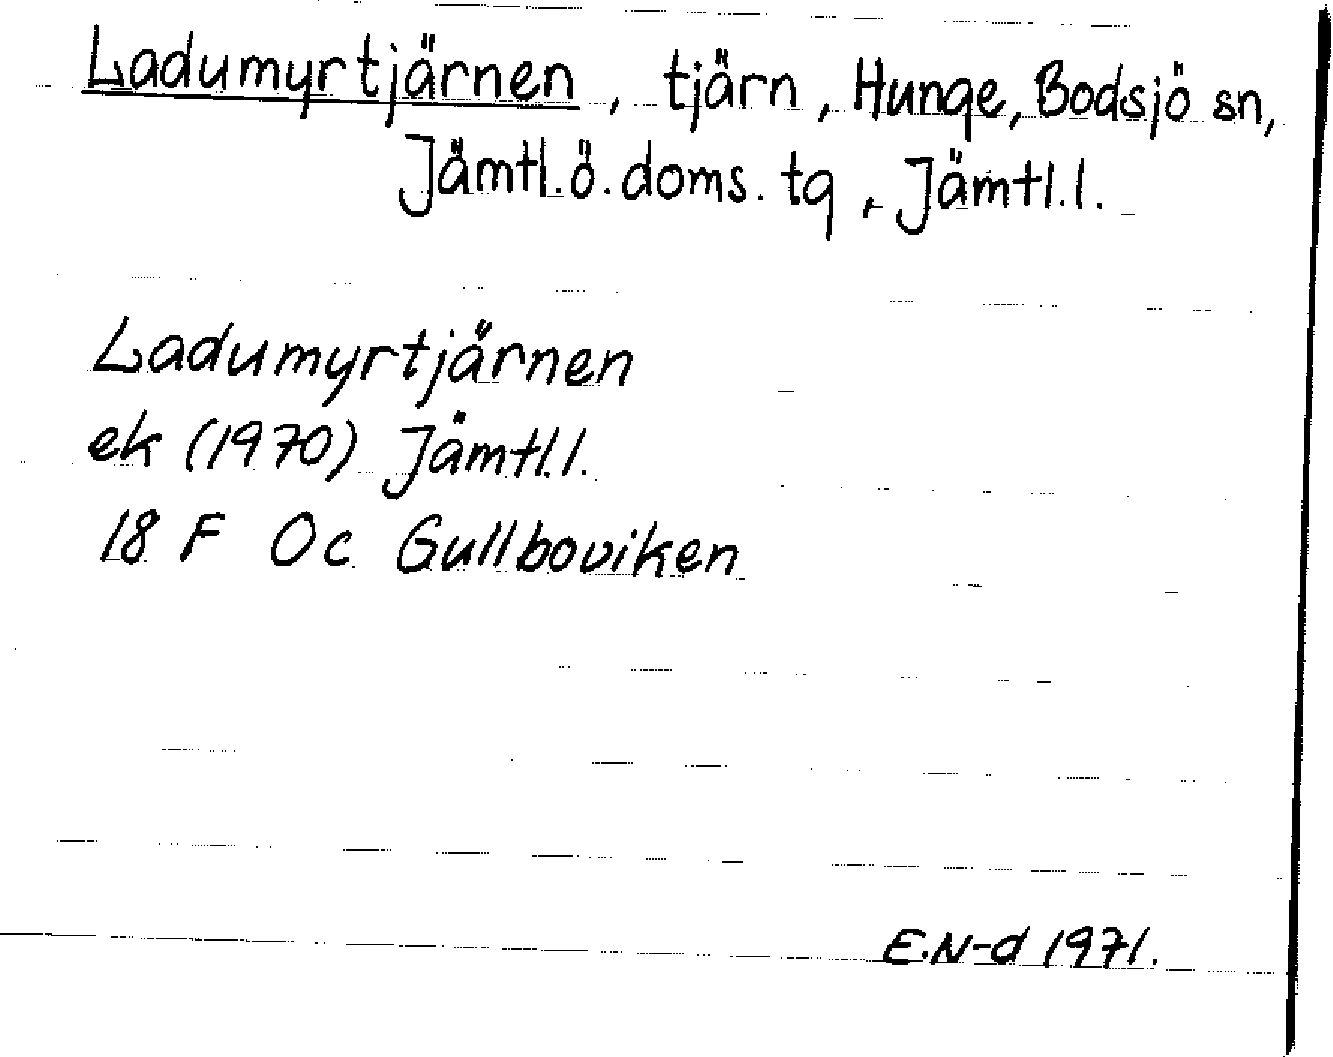 Ladumyrtjärnen, tjärn, Hunge, Bodsjö sn,
Jämtl.ö.doms.tg, Jämtl.l.
Ladumyrtjärnen
ek (1970) Jämtl.l.
18 F Oc Gullboviken
E.N-d 1971.